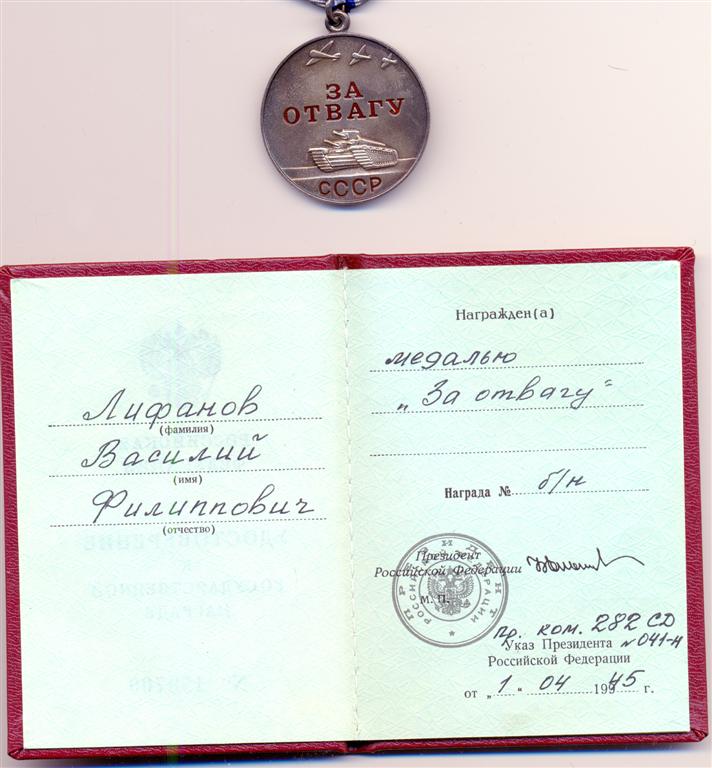 ЗА
ОТВАГУ
СССР
Лифанов
(фамилия)
Василий
(имя)
Филиппович
(отчество)
Награжден(а)
медалью
„За отвагу“
Награда № б/н
Президент
Российской Федерации
М. П.
пр. ком. 282 СД
Указ Президента № 041-н
Российской Федерации
от „1“ 04 1945 г.